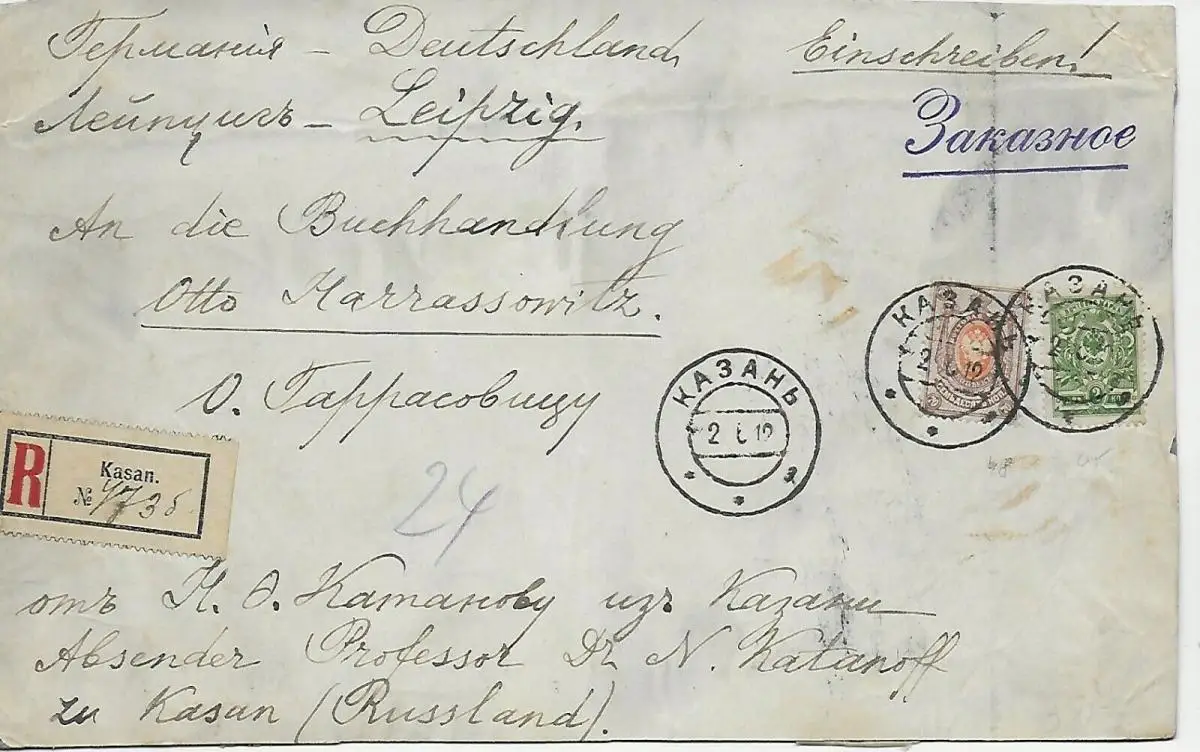 Германія – Deutschland, Einschreiben!
Лейпцигъ – Leipzig.
Заказное
An die Buchhandlung
Otto Harrassowitz.
О. Гаррасовицу
КАЗАНЬ
КАЗАНЬ
КАЗАНЬ
2 6.12
R
Kasan.
№ 473
24
отъ Н. Ѳ. Катанову изъ Казани
Absender Professor Dr N. Katanoff
zu Kasan (Russland).